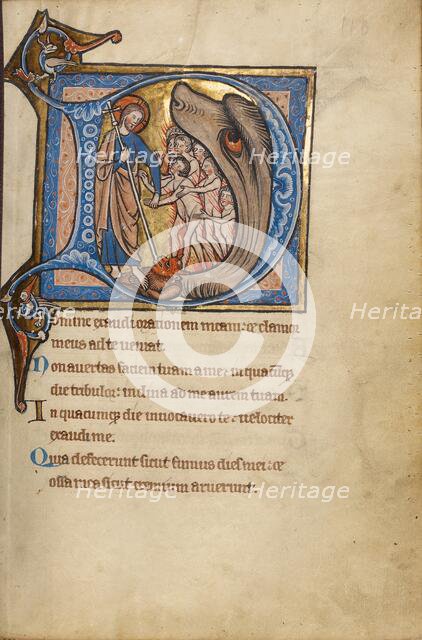 118
Domine exaudi orationem meam: et clamor
meus ad te veniat.
Non avertas faciem tuam a me: in quacūq;
die tribulor: inclina ad me aurem tuam.
In quacumq; die invocavero te: velociter
exaudi me.
Quia defecerunt sicut fumus dies mei: et
ossa mea sicut cremium aruerunt.
Heritage
Heritage
Heritage
Heritage
Heritage
Heritage